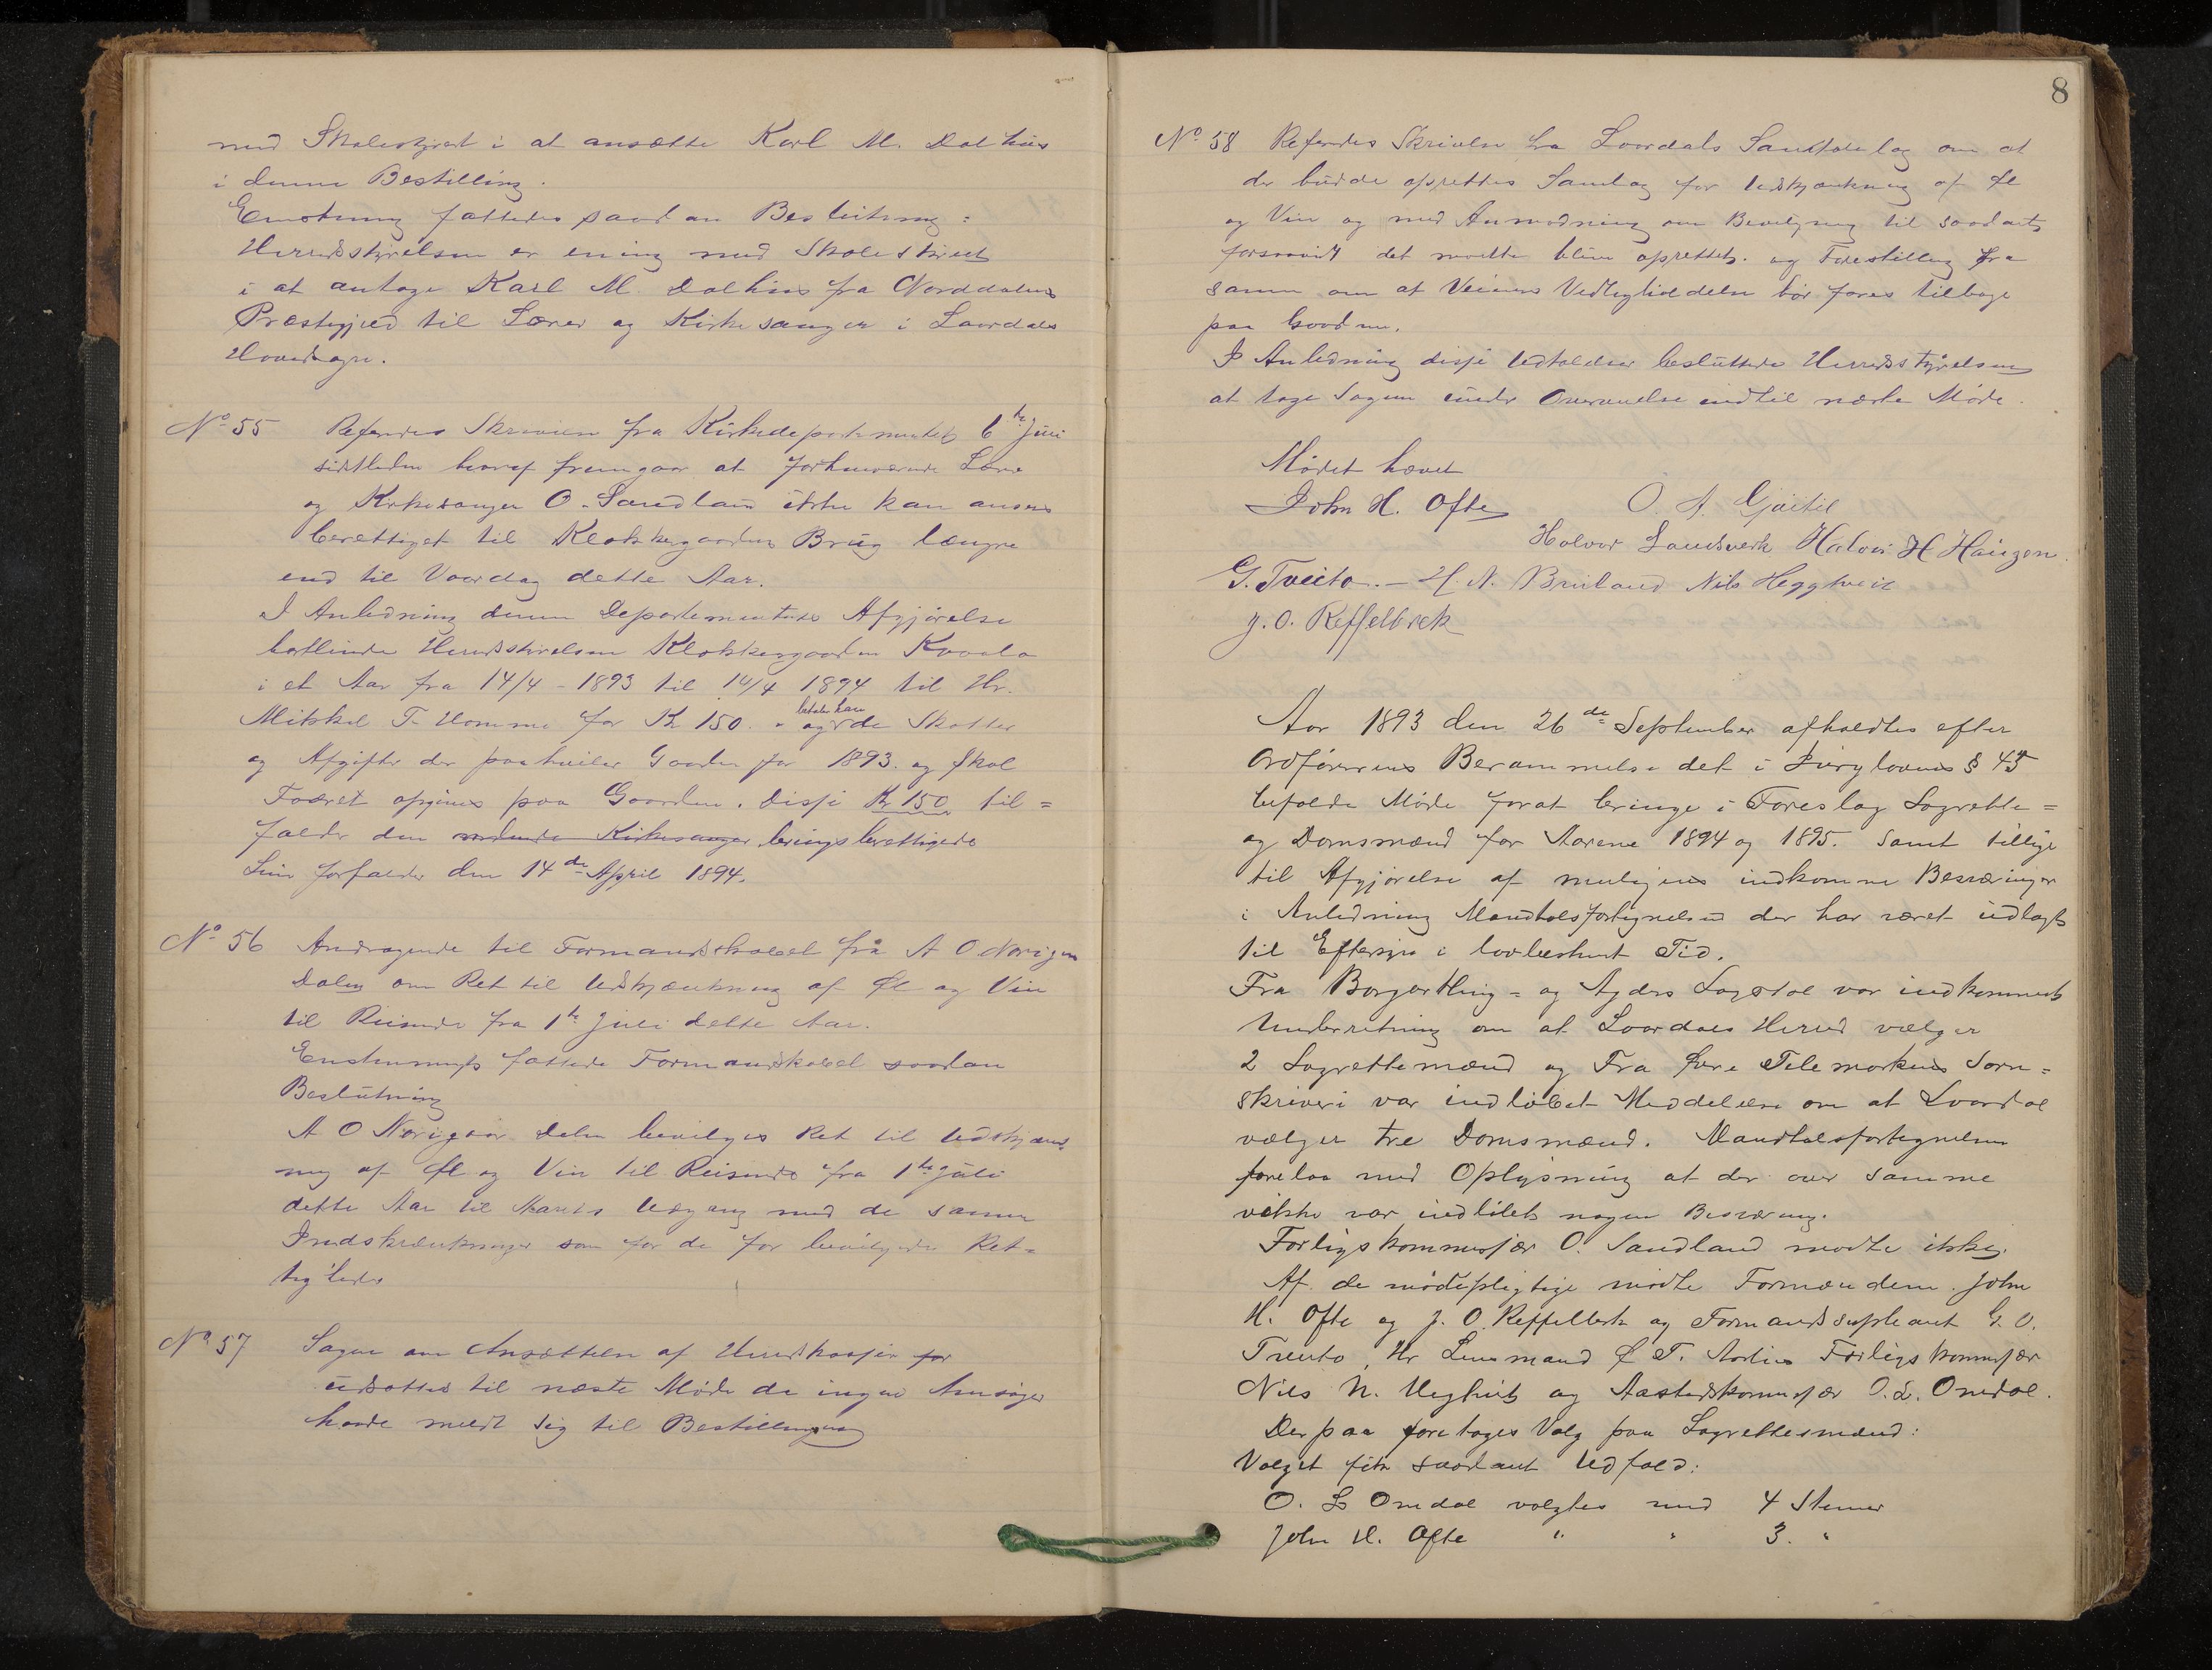 med Skolestyret i at ansætte Karl M. Dalhus
i denne Bestilling.
Enstemmig fattedes saadan Beslutning:
Herredsstyrelsen er enig med Skolestyret
i at antage Karl M. Dalhus fra Norddalens
Præstegjæld til Lærer og Kirkesanger i Laardals
Hovedsogn.
No 55 Referedes Skrivelse fra Kirkedepartementet 6te Juni
sidstleden hvoraf fremgaar at forhenværende Lærer
og Kirkesanger O. Sandland ikke kan ansees
berettiget til Klokkergaardens Brug længre
end til Vaardag dette Aar.
I Anledning denne Departementets Afgjørelse
bortleiede Herredsstyrelsen Klokkergaarden Kvaale
i et Aar fra 14/4 - 1893 til 14/4 1894 til Hr.
Mikkel T. Homme for Kr 150. - og betaler han de Skatter
og Afgifter der paahviler Gaarden for 1893. og skal
Foderet opgives paa Gaarden. Disse Kr 150 til=
falder den vordende Kirkesanger berettigede
Leie forfalder den 14de April 1894.
No 56 Andragende til Formandskabet fra A O Norigar
Dalen om Ret til Udskjænkning af Øl og Vin
til Reisende fra 1te Juli dette Aar.
Enstemmigt fattede Formandskabet saadan
Beslutning
A O Norigaar Dalen bevilges Ret til Udskjænk
ning af Øl og Vin til Reisende fra 1te Juli
dette Aar til Aarets Udgang med de samme
Indskrænkninger som for de før bevilgede Ret=
tigheder
No 57 Sagen om Ansættelse af Herredskasserer for
udsattes til næste Møde da ingen Ansøger
havde meldt sig til Bestillingen
8
No 58 Referedes Skrivelse fra Laardals Samtalelag om at
der burde oprettes Samlag for Udskjænkning af Øl
og Vin og med Anmodning om Bevilgning til saadant
forsaavidt det maatte blive oprettet. og Forestilling fra
samme om at Veienes Vedligeholdelse bør føres tilbage
paa Gaardene.
I Anledning disse Udtalelser besluttede Herredsstyrelsen
at tage Sagen under Overveielse indtil næste Møde.
Mødet hævet
John H. Ofte O. A. Gjøitil
Halvor Landsverk Halvor H Haugen
G. Tveito. - H. A. Bruland Nils Heggtveit
J. O. Reffelbæk
Aar 1893 den 26de September afholdtes efter
Ordførerens Berammelse det i Jurylovens § 45
befalede Møde forat bringe i Foreslag Lagrette=
og Domsmænd for Aarene 1894 og 1895. samt tillige
til Afgjørelse af muligens indkomne Besværinger
i Anledning Mandtalsfortegnelsen der har været udlagt
til Eftersyn i lovbestemt Tid.
Fra Borgarthing= og Agders Lagstol var indkommet
Underretning om at Laardals Herred vælger
2 Lagrettemænd og Fra Øvre Telemarkens Soren=
skriveri var indløbet Meddelelse om at Laardal
vælger tre Domsmænd. Mandtalsfortegnelsen
forelaa med Oplysning at der over samme
ikke var indløbet nogen Besværing.
Forligskommissær O. Sandland mødte ikke.
Af de mødepligtige mødte Formændene John
H. Ofte og J. O. Reffelbæk og Formandssupleant G. O.
Tveito, Hr Lensmand Ø T. Forligskommissær
Nils N. Heghvit og Aastedskommissær O. L. Omdal.
Derpaa foretoges Valg paa Lagrettesmænd:
Valget fik saadant Udfald:
O. L Omdal valgtes med 4 Stemmer
John H. Ofte " " 3. "